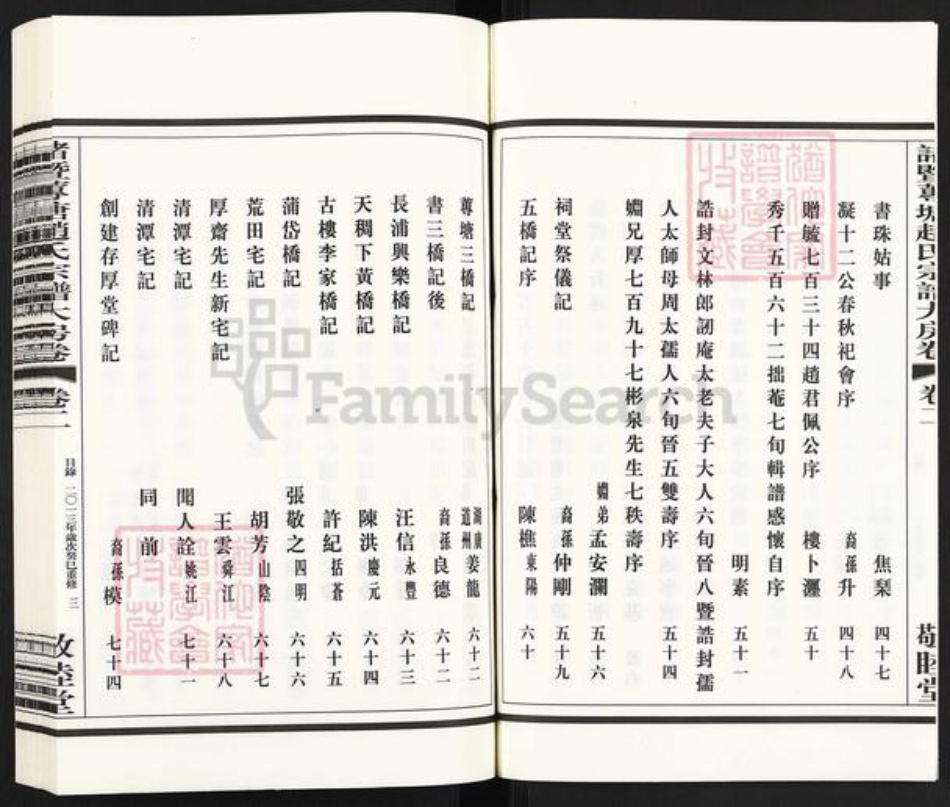 書珠姑事 焦琹 四十七
凝十二公春秋祀會序 裔孫升 四十八
贈毓七百三十四趙君佩公序 樓卜瀍 五十
秀千五百六十二拙菴七旬輯譜感懷自序 明素 五十一
誥封文林郎訒庵太老夫子大人六旬晉八暨誥封孺
人太師母周太孺人六旬晉五雙壽序 五十四
嫺兄厚七百九十七彬泉先生七秩壽序 嫺弟孟安瀾 五十六
祠堂祭儀記 裔孫仲剛 五十九
五橋記序 陳樵東陽 六十
敬睦堂
蓴塘三橋記 湖廣道州姜龍 六十二
書三橋記後 裔孫良德 六十二
長浦興樂橋記 汪信永豐 六十三
天稠下黃橋記 陳洪慶元 六十四
古樓李家橋記 許紀括蒼 六十五
蒲岱橋記 張敬之四明 六十六
荒田宅記 胡芳山陰 六十七
厚齋先生新宅記 王雲舜江 六十八
清潭宅記 聞人詮姚江 七十一
清潭宅記 同前
創建存厚堂碑記 裔孫模 七十四
諸暨蓴塘趙氏宗譜大房卷 卷二 目錄 二〇一三年歲次癸巳重修 三 敬睦堂
FamilySearch